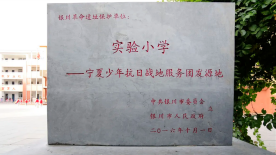 银川革命遗址保护单位：
实验小学
——宁夏少年抗日战地服务团发源地
中共银川市委员会
银川市人民政府
立
二〇一六年十月一日